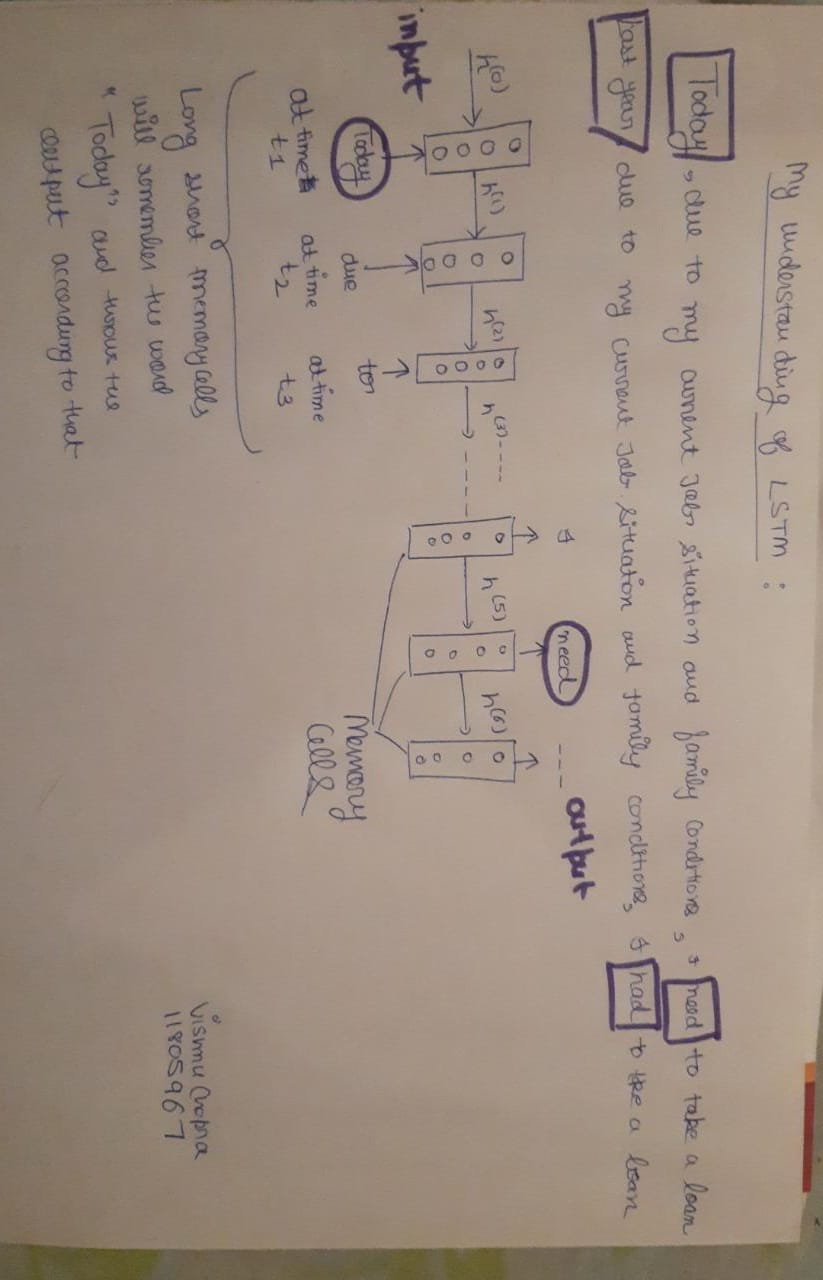 My understanding of LSTM :
Today, due to my current Job situation and family conditions, I need to take a loan
Last year, due to my current Job situation and family conditions, I had to take a loan
I need --- output
h(0) h(1) h(2) h(3)---- h(5) h(6)
input
Today due to
at time t1
at time t2
at time t3
Memory
Cells
Long short memory cells
will remember the word
"Today" and throws the
output according to that
Vismu Chopra
11805967